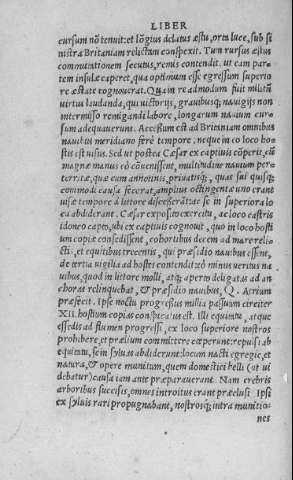 LIBER
cursum nō tenuit: et lōgius delatus æstu, orta luce, sub si
nistra Britaniam relictam conspexit. Tum rursus æstus
commutationem secutus, remis contendit, ut eam par
tem insulæ caperet, qua optimum esse egressum superio
re æstate cognouerat. Qua in re admodum fuit militū
uirtus laudanda, qui uictorijs, grauibusq; nauigijs non
intermisso remigandi labore, longarum nauium cur
sum adequauerunt. Accessum est ad Britaniam omnibus
nauibus meridiano ferè tempore. neque in eo loco ho
stis est uisus. Sed ut postea Cæsar ex captiuis cōperit, cū
magnæ manus eò cōuenissent, multitudine nauium per
territæ, quæ cum annotinis, priuatisq;, quas sui quisq;
commodi causa fecerat, amplius octingentæ uno erant
uisæ tempore à littore discesserāt: ac se in superiora lo
ca abdiderant. Cæsar exposito exercitu, ac loco castris
idoneo capto, ubi ex captiuis cognouit, quo in loco hosti
um copiæ consedissent, cohortibus decem ad mare reli
ctis: et equitibus trecentis, qui præsidio nauibus essent,
de tertia uigilia ad hostes contendit: eò minus ueritus na
uibus, quod in littore molli, atq; aperto deligatas ad an
choras relinquebat, & præsidio nauibus, Q. Atrium
præfecit. Ipse noctu progressus millia passuum circiter
XII. hostium copias conspicatus est. Illi equitatu, atque
essedis ad flumen progressi, ex loco superiore nostros
prohibere, et prælium committere cœperunt: repulsi ab
equitatu, se in syluas abdiderunt: locum nacti egregiè, et
natura, & opere munitum, quem domestici belli (ut ui
debatur) causa iam antè præparauerant. Nam crebris
arboribus succisis, omnes introitus erant præclusi. Ipsi
ex syluis rari propugnabant, nostrosq; intra munitio-
nes